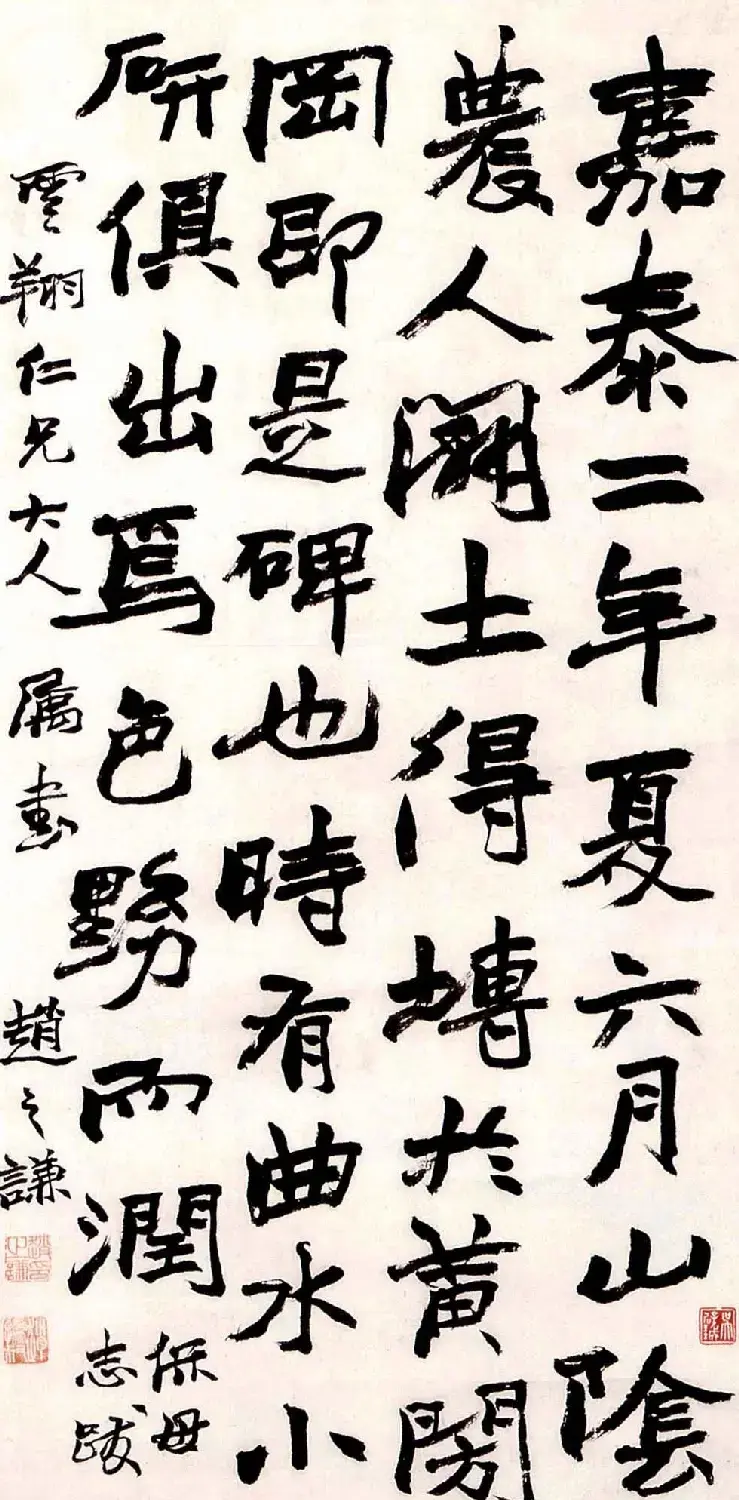 嘉泰二年夏六月山陰
農人闢土得塼於黃閍
岡即是碑也時有曲水小
研俱出焉色黝而潤
保母
志跋
雲翔仁兄大人屬書 趙之謙